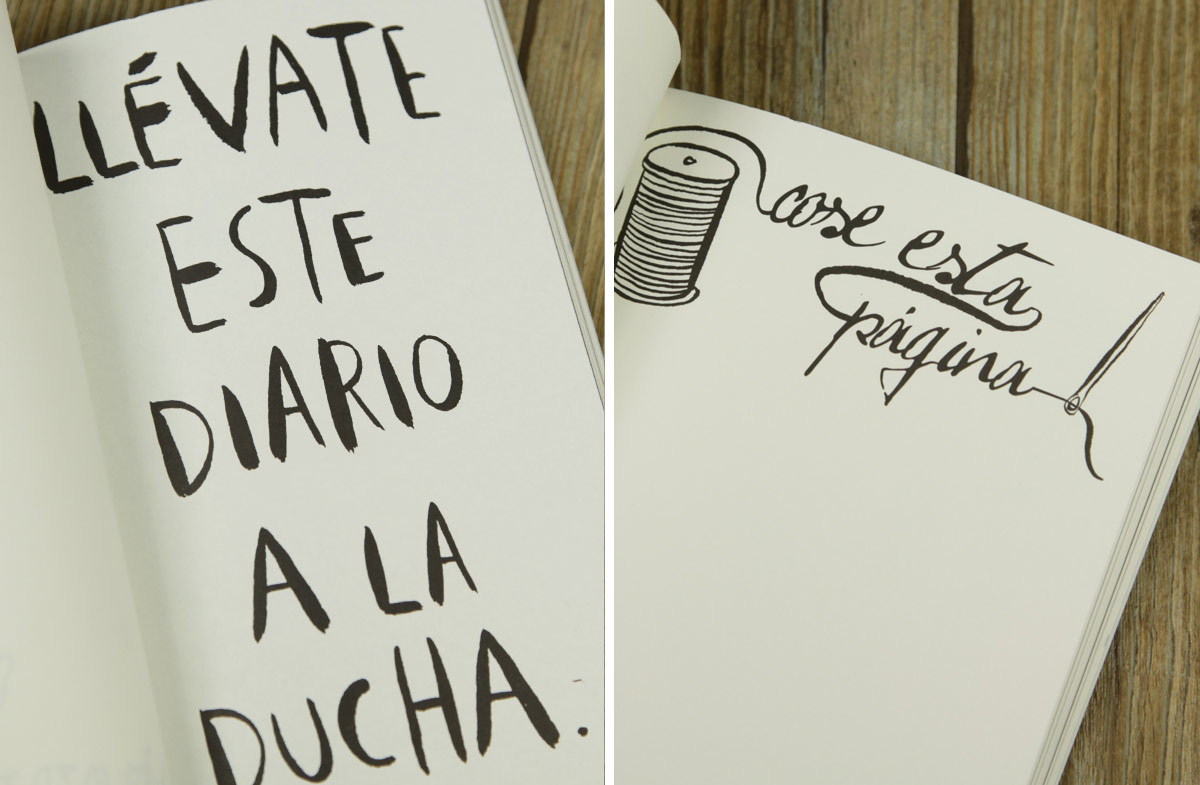 LLÉVATE
ESTE
DIARIO
A LA
DUCHA.
cose esta
página